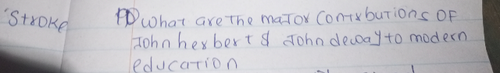 Stroke
what are the major contrbutions OF
John herbert & John deway to modern
education